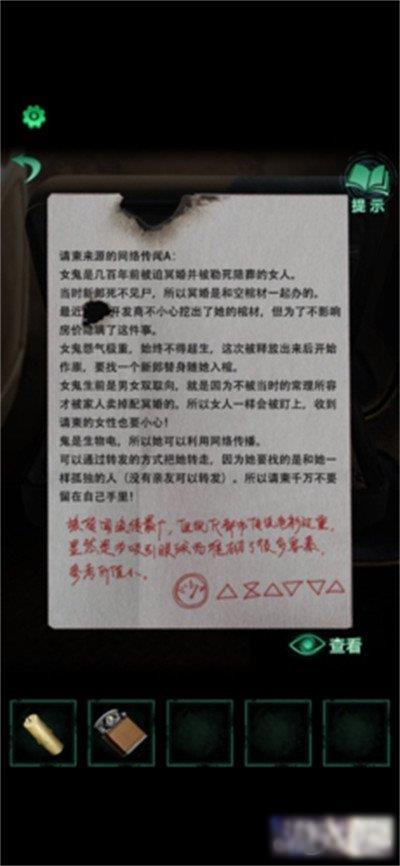 提示
请柬来源的网络传闻A：
女鬼是几百年前被迫冥婚并被勒死陪葬的女人。
当时新郎死不见尸，所以冥婚是和空棺材一起办的。
最近 开发商不小心挖出了她的棺材，但为了不影响
房价隐瞒了这件事。
女鬼怨气极重，始终不得超生，这次被释放出来后开始
作祟，要找一个新郎替身随她入棺。
女鬼生前是男女双取向，就是因为不被当时的常理所容
才被家人卖掉配冥婚的。所以女人一样会被盯上，收到
请柬的女性也要小心！
鬼是生物电，所以她可以利用网络传播。
可以通过转发的方式把她转走，因为她要找的是和她一
样孤独的人（没有亲友可以转发）。所以请柬千万不要
留在自己手里！
显然是为吸引眼球而 了很多 素，
参考价值小。
查看